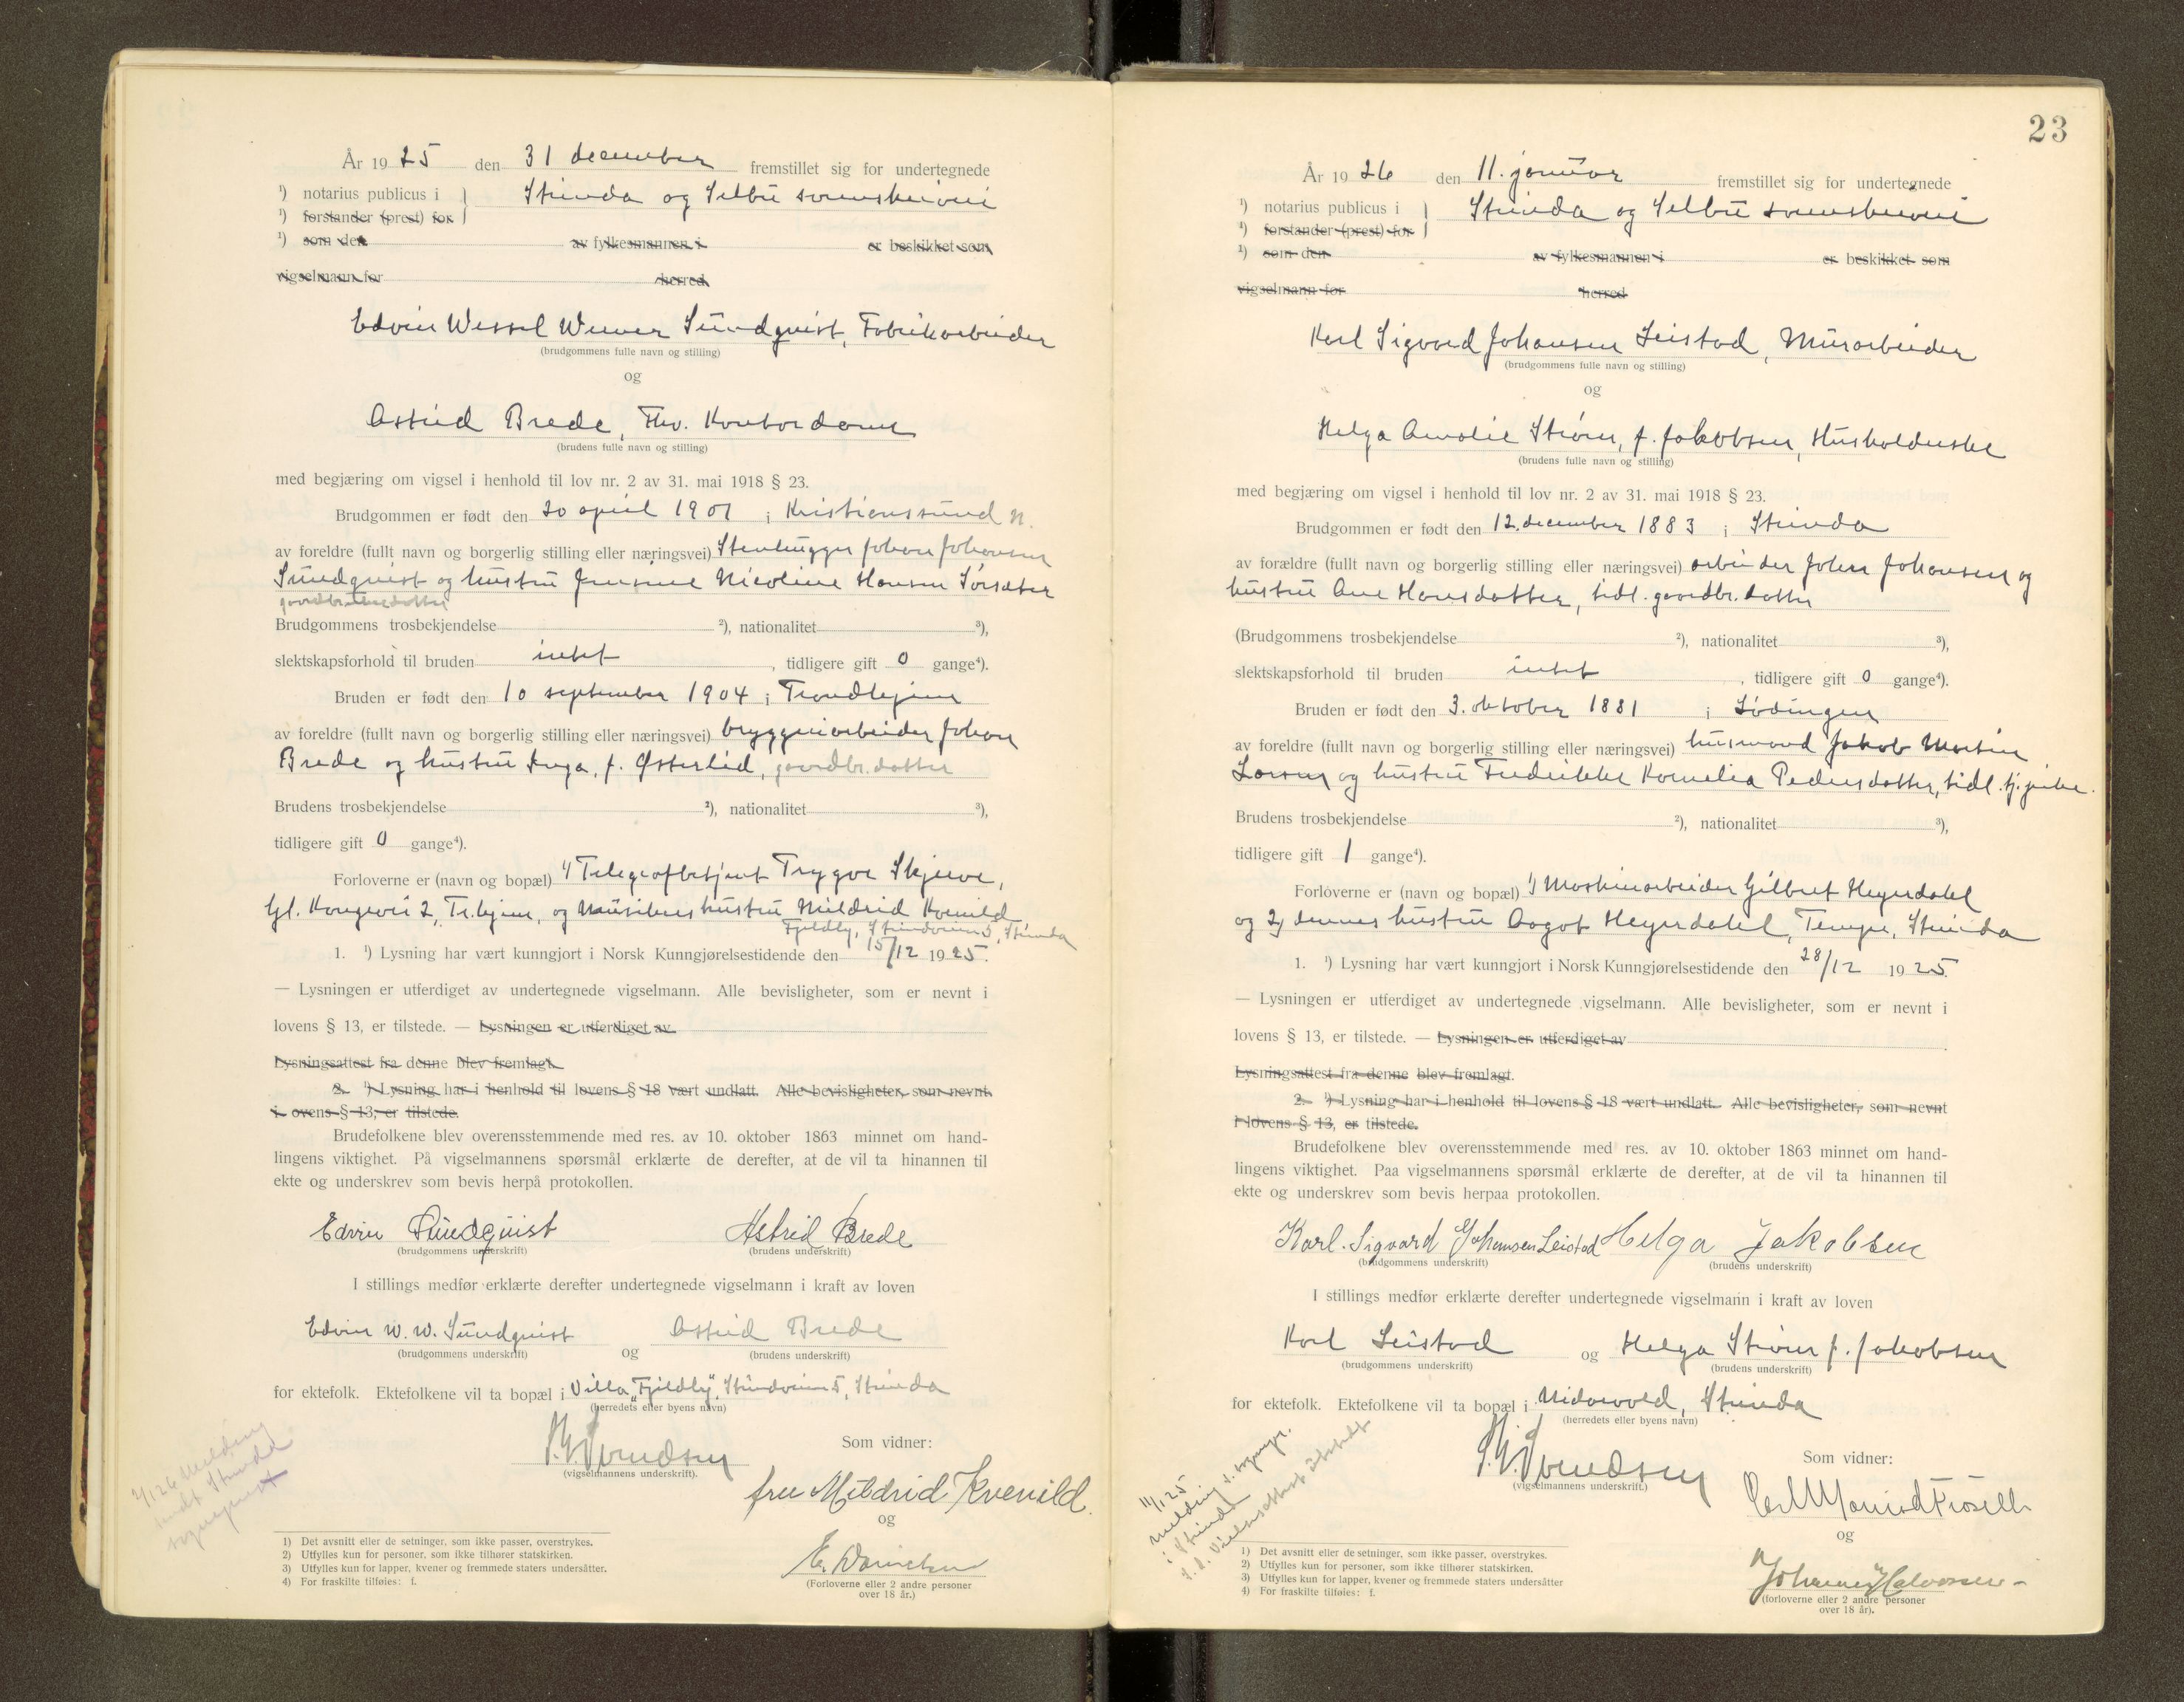 År 1925 den 31 december fremstillet sig for undertegnede
¹) notarius publicus i } Strinda og Selbu sorenskriveri
¹) forstander (prest) for
¹) som den av fylkesmannen i er beskikket som
vigselmann for herred
Edvin Wessel Werner Sundquist, Fabrikarbeider
(brudgommens fulle navn og stilling)
og
Astrid Brede, Fhv. Kontordame
(brudens fulle navn og stilling)
med begjæring om vigsel i henhold til lov nr. 2 av 31. mai 1918 § 23.
Brudgommen er født den 20 april 1901 i Kristianssund N.
av foreldre (fullt navn og borgerlig stilling eller næringsvei) Stenhugger Johan Johansen
Sundquist og hustru Jensine Nicoline Hansen Sørsæter
gaardbrukerdatter
Brudgommens trosbekjendelse ²), nationalitet ³),
slektskapsforhold til bruden intet, tidligere gift 0 gange⁴).
Bruden er født den 10 september 1904 i Trondhjem
av foreldre (fullt navn og borgerlig stilling eller næringsvei) bryggeriarbeider Johan
Brede og hustru Inga, f. Østerlid, gaardbr.datter
Brudens trosbekjendelse ²), nationalitet ³),
tidligere gift 0 gange⁴).
Forloverne er (navn og bopæl) 1) Telegrafbetjent Trygve Skjerve,
Gl. Kongevei 2, Tr.hjem, og Musikers hustru Mildrid Kvenild
Fjeldly, Strindveien 5, Strinda
1. ¹) Lysning har vært kunngjort i Norsk Kunngjørelsestidende den 15/12 1925.
— Lysningen er utferdiget av undertegnede vigselmann. Alle bevisligheter, som er nevnt i
lovens § 13, er tilstede. — Lysningen er utferdiget av
Lysningsattest fra denne blev fremlagt.
2. ¹) Lysning har i henhold til lovens § 18 vært undlatt. Alle bevisligheter, som nevnt
i ovens § 13, er tilstede.
Brudefolkene blev overensstemmende med res. av 10. oktober 1863 minnet om hand-
lingens viktighet. På vigselmannens spørsmål erklærte de derefter, at de vil ta hinannen til
ekte og underskrev som bevis herpå protokollen.
Edvin Sundquist Astrid Brede
(brudgommens underskrift) (brudens underskrift)
I stillings medfør erklærte derefter undertegnede vigselmann i kraft av loven
Edvin W. W. Sundquist og Astrid Brede
(brudgommens underskrift) (brudens underskrift)
for ektefolk. Ektefolkene vil ta bopæl i Villa "Fjeldly", Strindveien 5, Strinda
(herredets eller byens navn)
(vigselmannens underskrift).
Som vidner:
fru Mildrid Kvenild.
og
(Forloverne eller 2 andre personer
over 18 år.)
2/1 26 Melding
sendt Strinda
sogneprest
1) Det avsnitt eller de setninger, som ikke passer, overstrykes.
2) Utfylles kun for personer, som ikke tilhører statskirken.
3) Utfylles kun for lapper, kvener og fremmede staters undersåtter.
4) For fraskilte tilføies: f.
23
År 1926 den 11. januar fremstillet sig for undertegnede
¹) notarius publicus i } Strinda og Selbu sorenskriveri
¹) forstander (prest) for
¹) som den av fylkesmannen i er beskikket som
vigselmann for herred
Karl Sigvard Johansen Leistad, Murarbeider
(brudgommens fulle navn og stilling)
og
Helga Amalie Strøm, f. Jakobsen, Husholderske
(brudens fulle navn og stilling)
med begjæring om vigsel i henhold til lov nr. 2 av 31. mai 1918 § 23.
Brudgommen er født den 12. december 1883 i Strinda
av forældre (fullt navn og borgerlig stilling eller næringsvei) arbeider Johan Johansen og
hustru Ane Hansdatter, tidl. gaardbr.datter
(Brudgommens trosbekjendelse ²), nationalitet ³),
slektskapsforhold til bruden intet, tidligere gift 0 gange⁴).
Bruden er født den 3. oktober 1881 i Lødingen
av foreldre (fullt navn og borgerlig stilling eller næringsvei) husmand Jakob Martin
Larsen og hustru Fredrikke Kornelia Pedersdatter, tidl. tj.pike.
Brudens trosbekjendelse ²), nationalitet ³),
tidligere gift 1 gange⁴).
Forloverne er (navn og bopæl) 1) Maskinarbeider Gilbret Heyerdahl
og 2) dennes hustru Aagot Heyerdahl, Tempe, Strinda
1. ¹) Lysning har vært kunngjort i Norsk Kunngjørelsestidende den 28/12 1925.
— Lysningen er utferdiget av undertegnede vigselmann. Alle bevisligheter, som er nevnt i
lovens § 13, er tilstede. — Lysningen er utferdiget av
Lysningsattest fra denne blev fremlagt.
2. ¹) Lysning har i henhold til lovens § 18 vært undlatt. Alle bevisligheter, som nevnt
i lovens § 13, er tilstede.
Brudefolkene blev overensstemmende med res. av 10. oktober 1863 minnet om hand-
lingens viktighet. Paa vigselmannens spørsmål erklærte de derefter, at de vil ta hinannen til
ekte og underskrev som bevis herpaa protokollen.
Karl. Sigvard Johansen Leistad Helga Jakobsen
(brudgommens underskrift) (brudens underskrift)
I stillings medfør erklærte derefter undertegnede vigselmann i kraft av loven
Karl Leistad og Helga Strøm f. Jakobsen
(brudgommens underskrift) (brudens underskrift)
for ektefolk. Ektefolkene vil ta bopæl i Nidarvold, Strinda
(herredets eller byens navn)
(vigselmannens underskrift.)
Som vidner:
og
Johannes Halvorsen
(forloverne eller 2 andre personer
over 18 år).
11/1 25
Melding s. sognepr.
i Strinda
s. d. Vielsesattest utstedt
1) Det avsnitt eller de setninger, som ikke passer, overstrykes.
2) Utfylles kun for personer, som ikke tilhører statskirken.
3) Utfylles kun for lapper, kvener og fremmede staters undersåtter
4) For fraskilte tilføies: f.